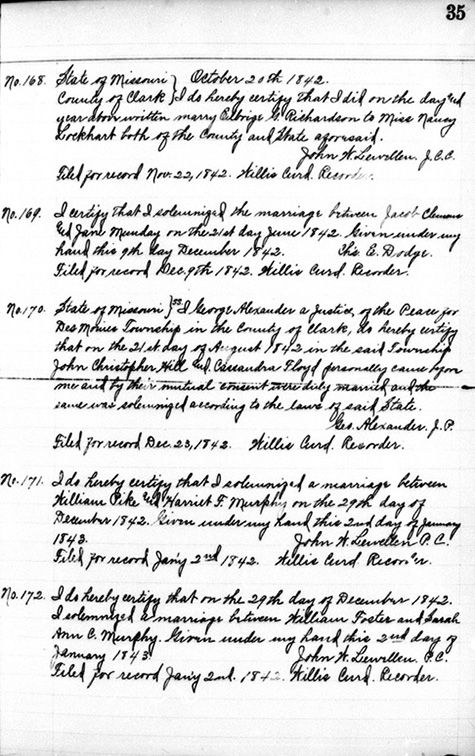 35
No. 168. State of Missouri } October 20th 1842.
County of Clark } I do hereby certify that I did on the day and
year above written marry Elbrige G. Richardson to Miss Nancy
Lockhart both of the County and State aforesaid.
John W. Lewellen, J.C.C.
Filed for record Nov. 22, 1842. Willis Curd. Recorder.
No. 169. I certify that I solemnized the marriage between Jacob Clemons
and Jane Munday on the 21st day June 1842. Given under my
hand this 9th day December 1842. Chs. E. Dodge.
Filed for record Dec. 9th 1842. Willis Curd. Recorder.
No. 170. State of Missouri } ss I George Alexander a Justice, of the Peace for
Des Moines Township in the County of Clark, do hereby certify
that on the 21st day of August 1842 in the said Township
John Christopher Hill and Cassandra Floyd personally came before
me and by their mutual consent were duly married and the
same was solemnized according to the laws of said State.
Geo. Alexander, J.P.
Filed for record Dec. 23, 1842. Willis Curd. Recorder.
No. 171. I do hereby certify that I solemnized a marriage between
William Pike and Harriet F. Murphy on the 29th day of
December 1842. Given under my hand this 2nd day of January
1843. John W. Lewellen P.C.
Filed for record Jan'y 2nd 1842. Willis Curd. Recorder.
No. 172. I do hereby certify that on the 29th day of December 1842.
I solemnized a marriage between William Foster and Sarah
Ann C. Murphy. Given under my hand this 2nd day of
January 1843. John W. Lewellen, P.C.
Filed for record Jan'y 2nd. 1842. Willis Curd. Recorder.